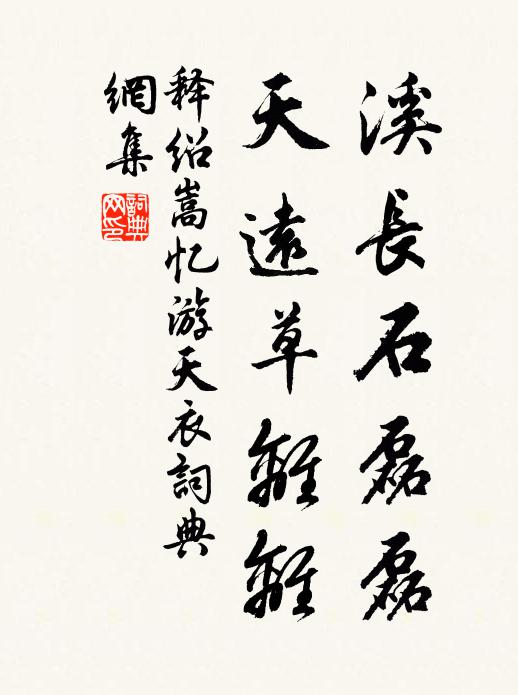 溪長石磊磊
天遠草離離
释绍嵩忆游天衣詞典
網集
詞典
网印